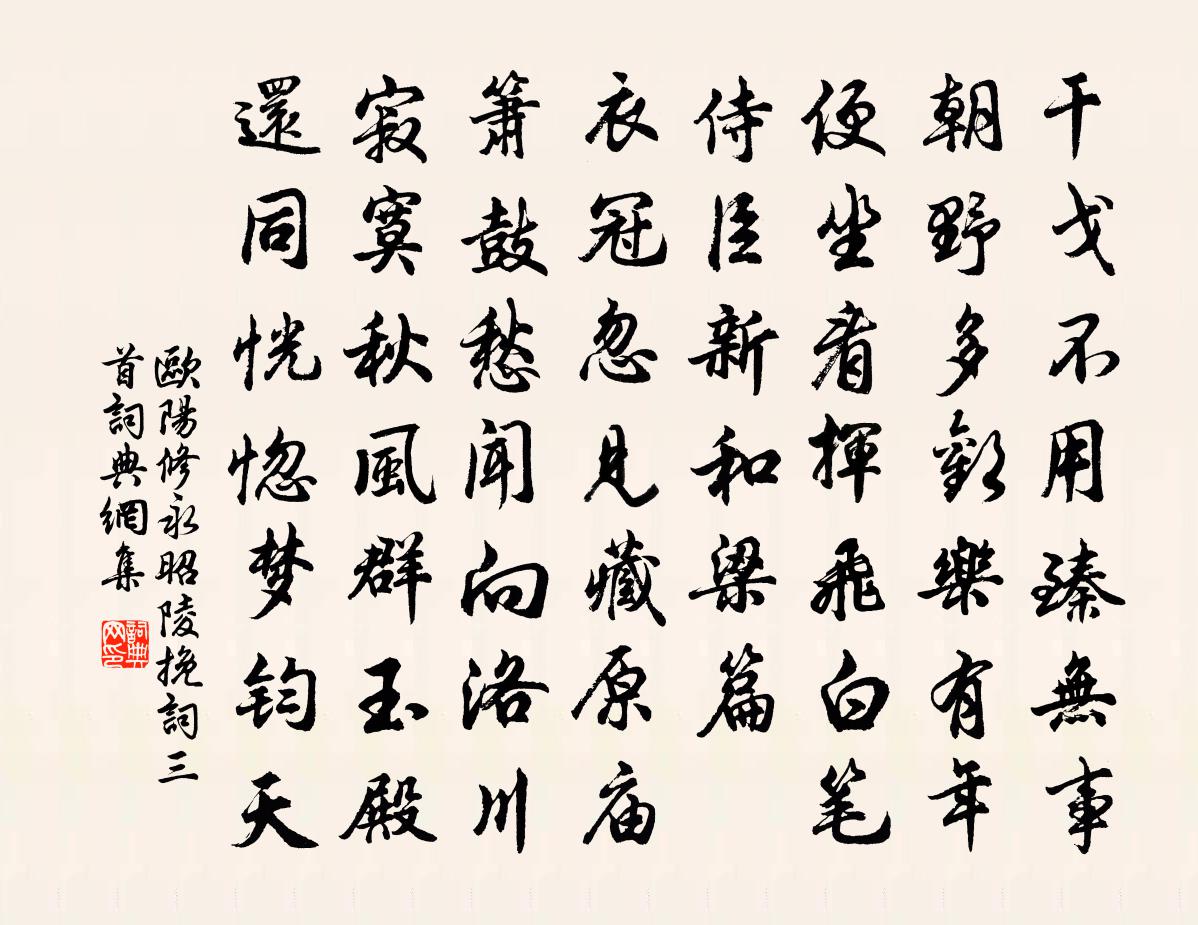 干戈不用臻無事
朝野多歡樂有年
便坐看揮飛白笔
侍臣新和梁篇
衣冠忽見藏原庙
簫鼓愁闻向洛川
寂寞秋風群玉殿
還同恍惚梦钧天
歐陽修永昭陵挽詞三
首詞典網集
詞典
网印